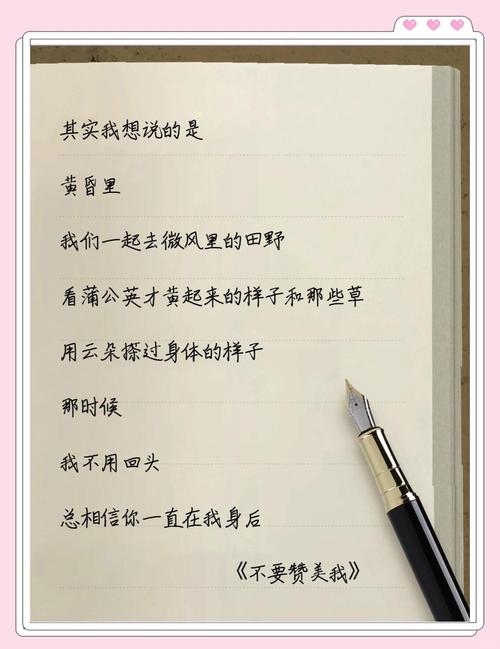 其实我想说的是
黄昏里
我们一起去微风里的田野
看蒲公英才黄起来的样子和那些草
用云朵搽过身体的样子
那时候
我不用回头
总相信你一直在我身后
《不要赞美我》